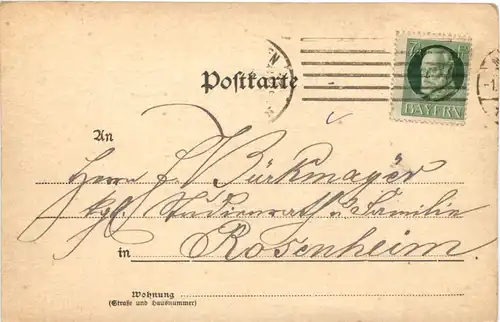 Postkarte
BAYERN
An
Herrn F. Bürkmayer
kgl. Studienrath u. Familie
in Rosenheim
Wohnung
(Straße und Hausnummer)